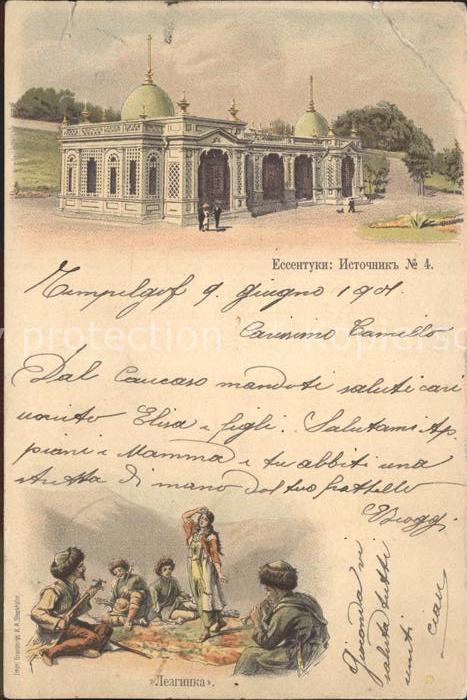 Ессентуки: Источникъ № 4.
9. giugno 1901.
Carissimo Camillo
Dal Caucaso mandoti saluti cari
unito Elisa e figli. Salutami Ap-
piani e Mamma e tu abbiti una
stretta di mano dal tuo fratello
vi
saluta tutti
uniti
ciau
»Лезгинка«.